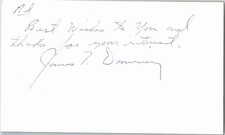 Best Wishes to You and
thanks for your interest.
James T. Downey